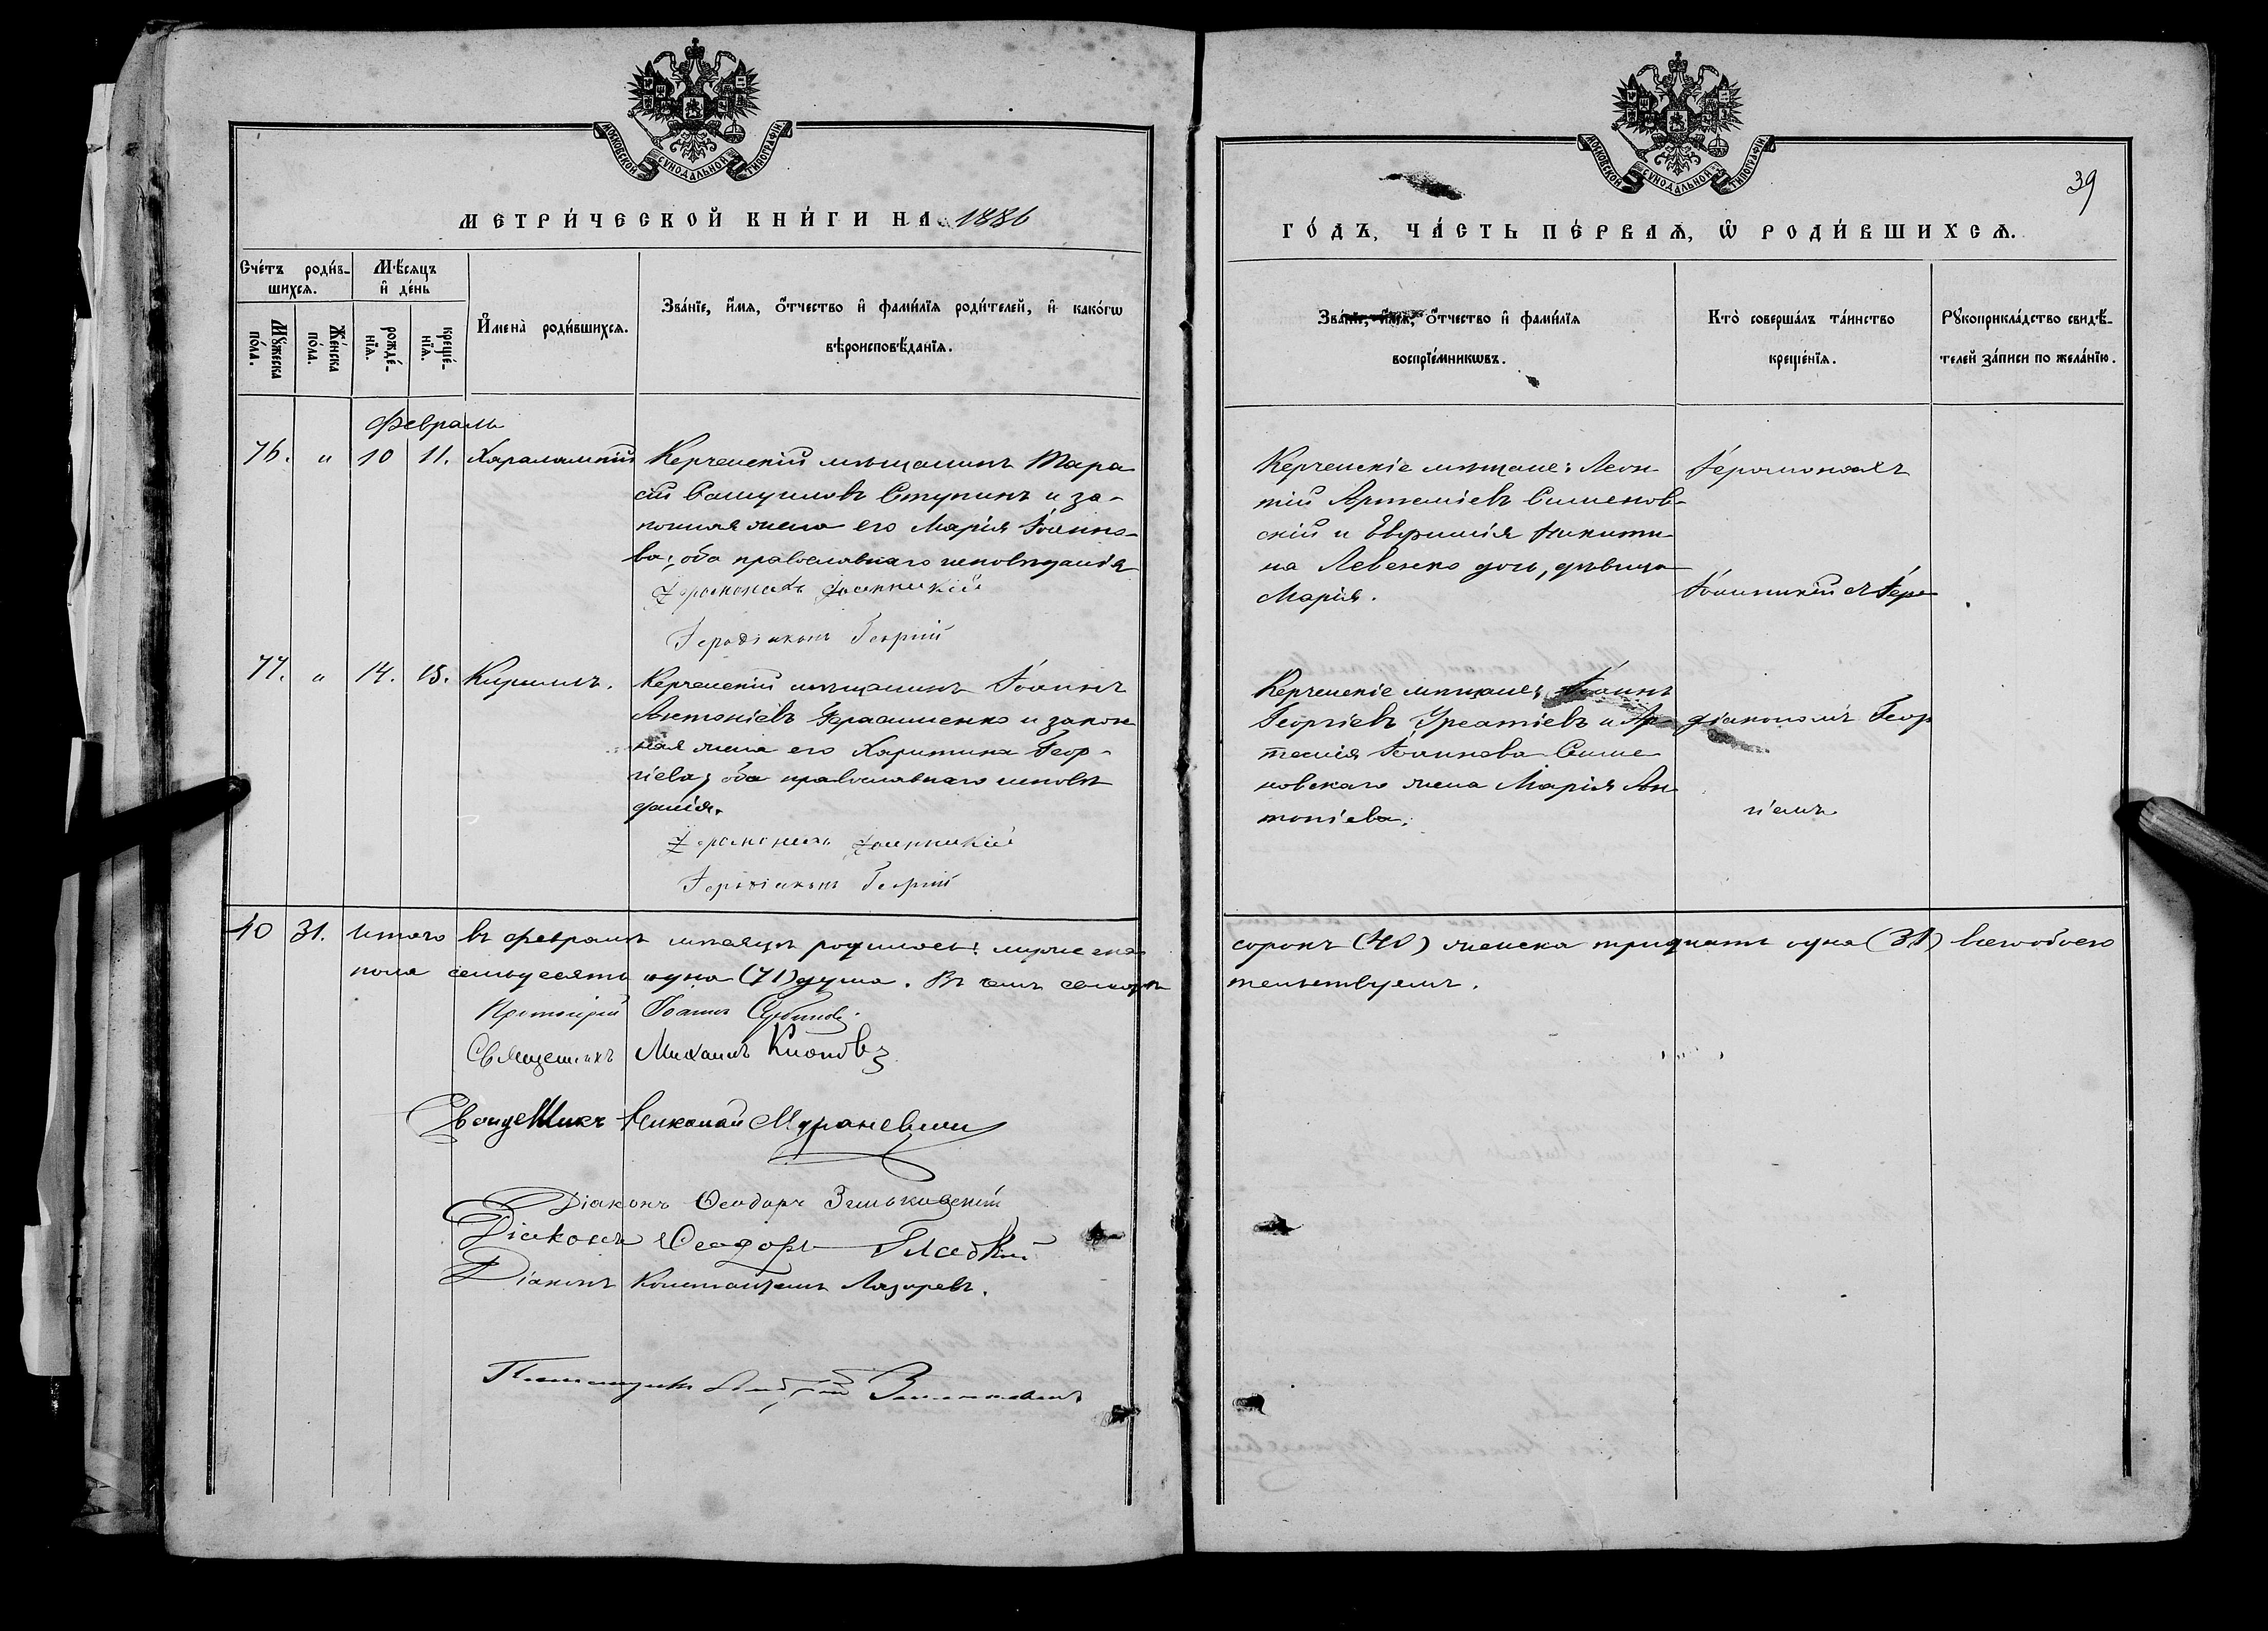 МОСКОВСКОЙ СѴНОДАЛЬНОЙ ТИПОГРАФІИ
МЕТРИ́ЧЕСКОЙ КНИ́ГИ НА 1886
Сче́тъ роди́в-
шихсѧ.
Мѣ́сѧцъ
и҆ де́нь
Мꙋ́жеска
по́ла.
Же́нска
по́ла.
рожде́-
нїѧ.
креще́-
нїѧ.
И҆мена̀ роди́вшихсѧ.
Зва́нїе, и҆́мѧ, ѻ҆́тчество и҆ фами́лїѧ роди́телей, и҆ како́гѡ
вѣроисповѣ́данїѧ.
Февраль
76. " 10 11. Харалампій
Керченскій мѣщанинъ Тара
сій Самуиловъ Ступинъ и за-
конная жена его Марія Іоанно-
ва; оба православнаго исповѣданія
Іеромонахъ Іоанникій
Іеродіаконъ Георгій
77. " 14. 15. Кириллъ.
Керченскій мѣщанинъ Іоаннъ
Антоніевъ Герасименко и закон
ная жена его Харитина Геор-
гіева; оба православнаго исповѣ
данія.
Іеромонахъ Іоанникій
Іеродіаконъ Георгій
40 31. Итого въ февралѣ мѣсяцѣ родилось: мужеска
пола семьдесятъ одна (71) душа. Въ чемъ свидѣ
Протоіерей Іоаннъ
Священникъ Михаилъ Клоповъ
Священникъ Николай Мураневичъ
Діаконъ Ѳеодоръ Зиньковскій
Діаконъ Ѳеодоръ Гладкій
Діаконъ Константинъ Лазаревъ.
МОСКОВСКОЙ СѴНОДАЛЬНОЙ ТИПОГРАФІИ
39
ГО́ДЪ, ЧА́СТЬ ПЕ́РВАѦ, Ѡ҆ РОДИ́ВШИХСѦ.
Зва́нїе, и҆́мѧ, ѻ҆́тчество и҆ фами́лїѧ
воспрїе́мникѡвъ.
Кто̀ соверша́лъ та́инство
креще́нїѧ.
Рꙋкоприкла́дство свидѣ́-
телей за́писи по жела́нїю.
Керченскіе мѣщане: Леон
тій Артеміевъ Сименов-
скій и Евфимія Никити
на Левенко дочь, дѣвица
Марія.
Іеромонахъ
Іоанникій съ Іеро
Керченскіе мѣщане; Іоаннъ
Георгіевъ и Ар
темія Іоаннова Симе
новскаго жена Марія Ан
тоніева.
діакономъ Геор
гіемъ
сорокъ (40) женска тридцать одна (31) всего обоего
тельствуемъ.